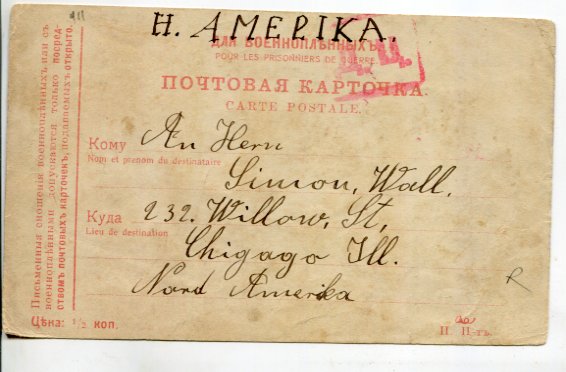 Н. АМЕРІКА.
ДЛЯ ВОЕННОПЛѢННЫХЪ
POUR LES PRISONNIERS DE GUERRE
Д. Ц.
ПОЧТОВАЯ КАРТОЧКА.
CARTE POSTALE.
Кому An Herrn
Nom et prénom du destinataire
Simon, Wall.
Куда 232. Willow, St,
Lieu de destination
Chigago Ill.
Nord Amerika
R
Цѣна: 1/2 коп.
П. Ц-ть.
Письменныя сношенія военноплѣнныхъ или съ
военноплѣнными допускаются только посред-
ствомъ почтовыхъ карточекъ, подаваемыхъ открыто.